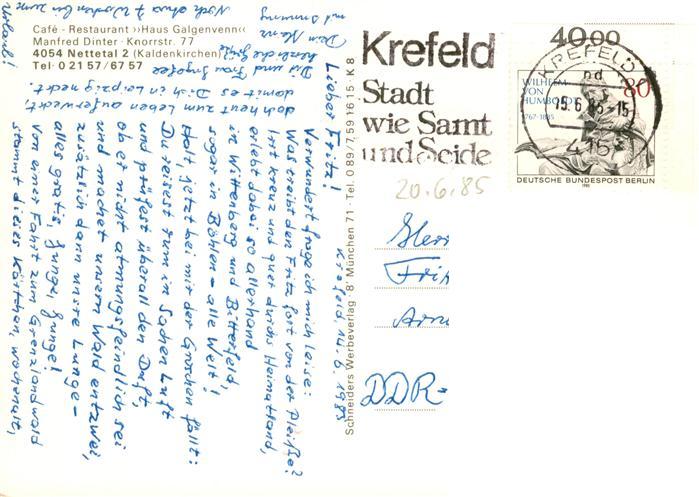 Café - Restaurant »Haus Galgenvenn«
Manfred Dinter · Knorrstr. 77
4054 Nettetal 2 (Kaldenkirchen)
Tel· 0 21 57/67 57
Krefeld, 14.6.1985
Lieber Fritz!
Verwundert frage ich mich leise:
Was treibt den Fritz fort von der Pleiße?
Irrt kreuz und quer durchs Heimatland,
erlebt dabei so allerhand
in Wittenberg und Bitterfeld,
sogar in Böhlen - alle Welt!
Halt, jetzt bei mir der Groschen fällt:
Du reisest rum in Sachen Luft
und prüfest überall den Duft,
ob er nicht atmungsfeindlich sei
und machet unsern Wald entzwei,
zusätzlich dann unsre Lunge -
alles gratis, Junge, Junge!
Von einer Fahrt zum Grenzlandwald
stammt dieses Kärtchen, wochenalt,
doch heut zum Leben auferweckt,
damit es Dich in Leipzig neckt.
Dir und Frau Ingelore
herzliche Grüße
Dein Heinz
und
Noch etwa 7 Wochen bis zum
Urlaub!
Schneiders Werbeverlag · 8 München 71 · Tel. 0 89 / 7 59 16 15 · K 8
Krefeld
Stadt
wie Samt
und Seide
40.00
KREFELD
nd
15.6.85-15
4150
WILHELM
VON
HUMBOLDT
1767-1835
80
DEUTSCHE BUNDESPOST BERLIN
1985
20.6.85
Herr
DDR-